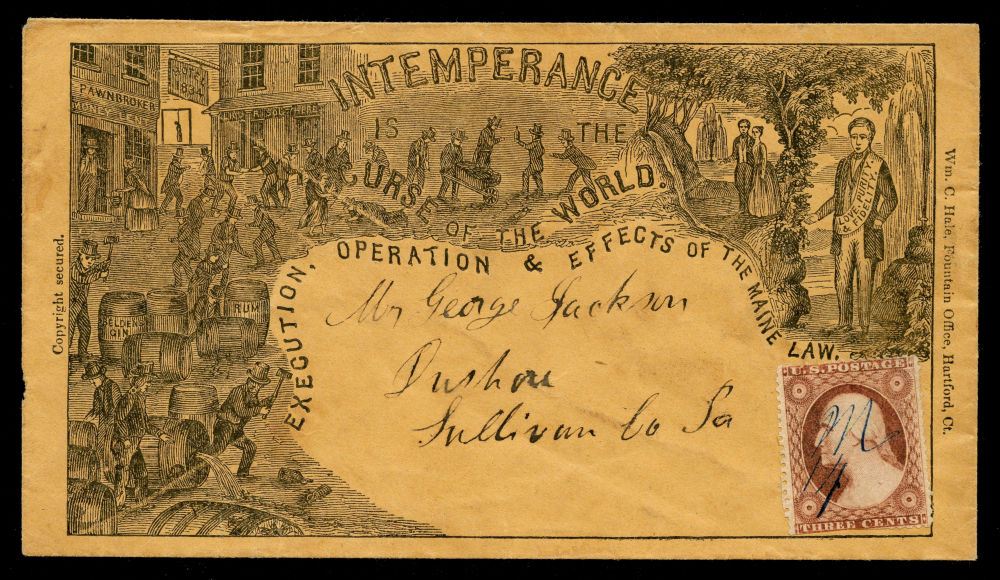 INTEMPERANCE
IS THE
CURSE OF THE WORLD.
EXECUTION, OPERATION & EFFECTS OF THE MAINE LAW.
PAWNBROKER
1834
RUM
GIN
LOVE PURITY & FIDELITY
Mr George Jackson
Dushore
Sullivan Co Pa
Copyright secured.
Wm. C. Hale, Fountain Office, Hartford, Ct.
U.S. POSTAGE
THREE CENTS